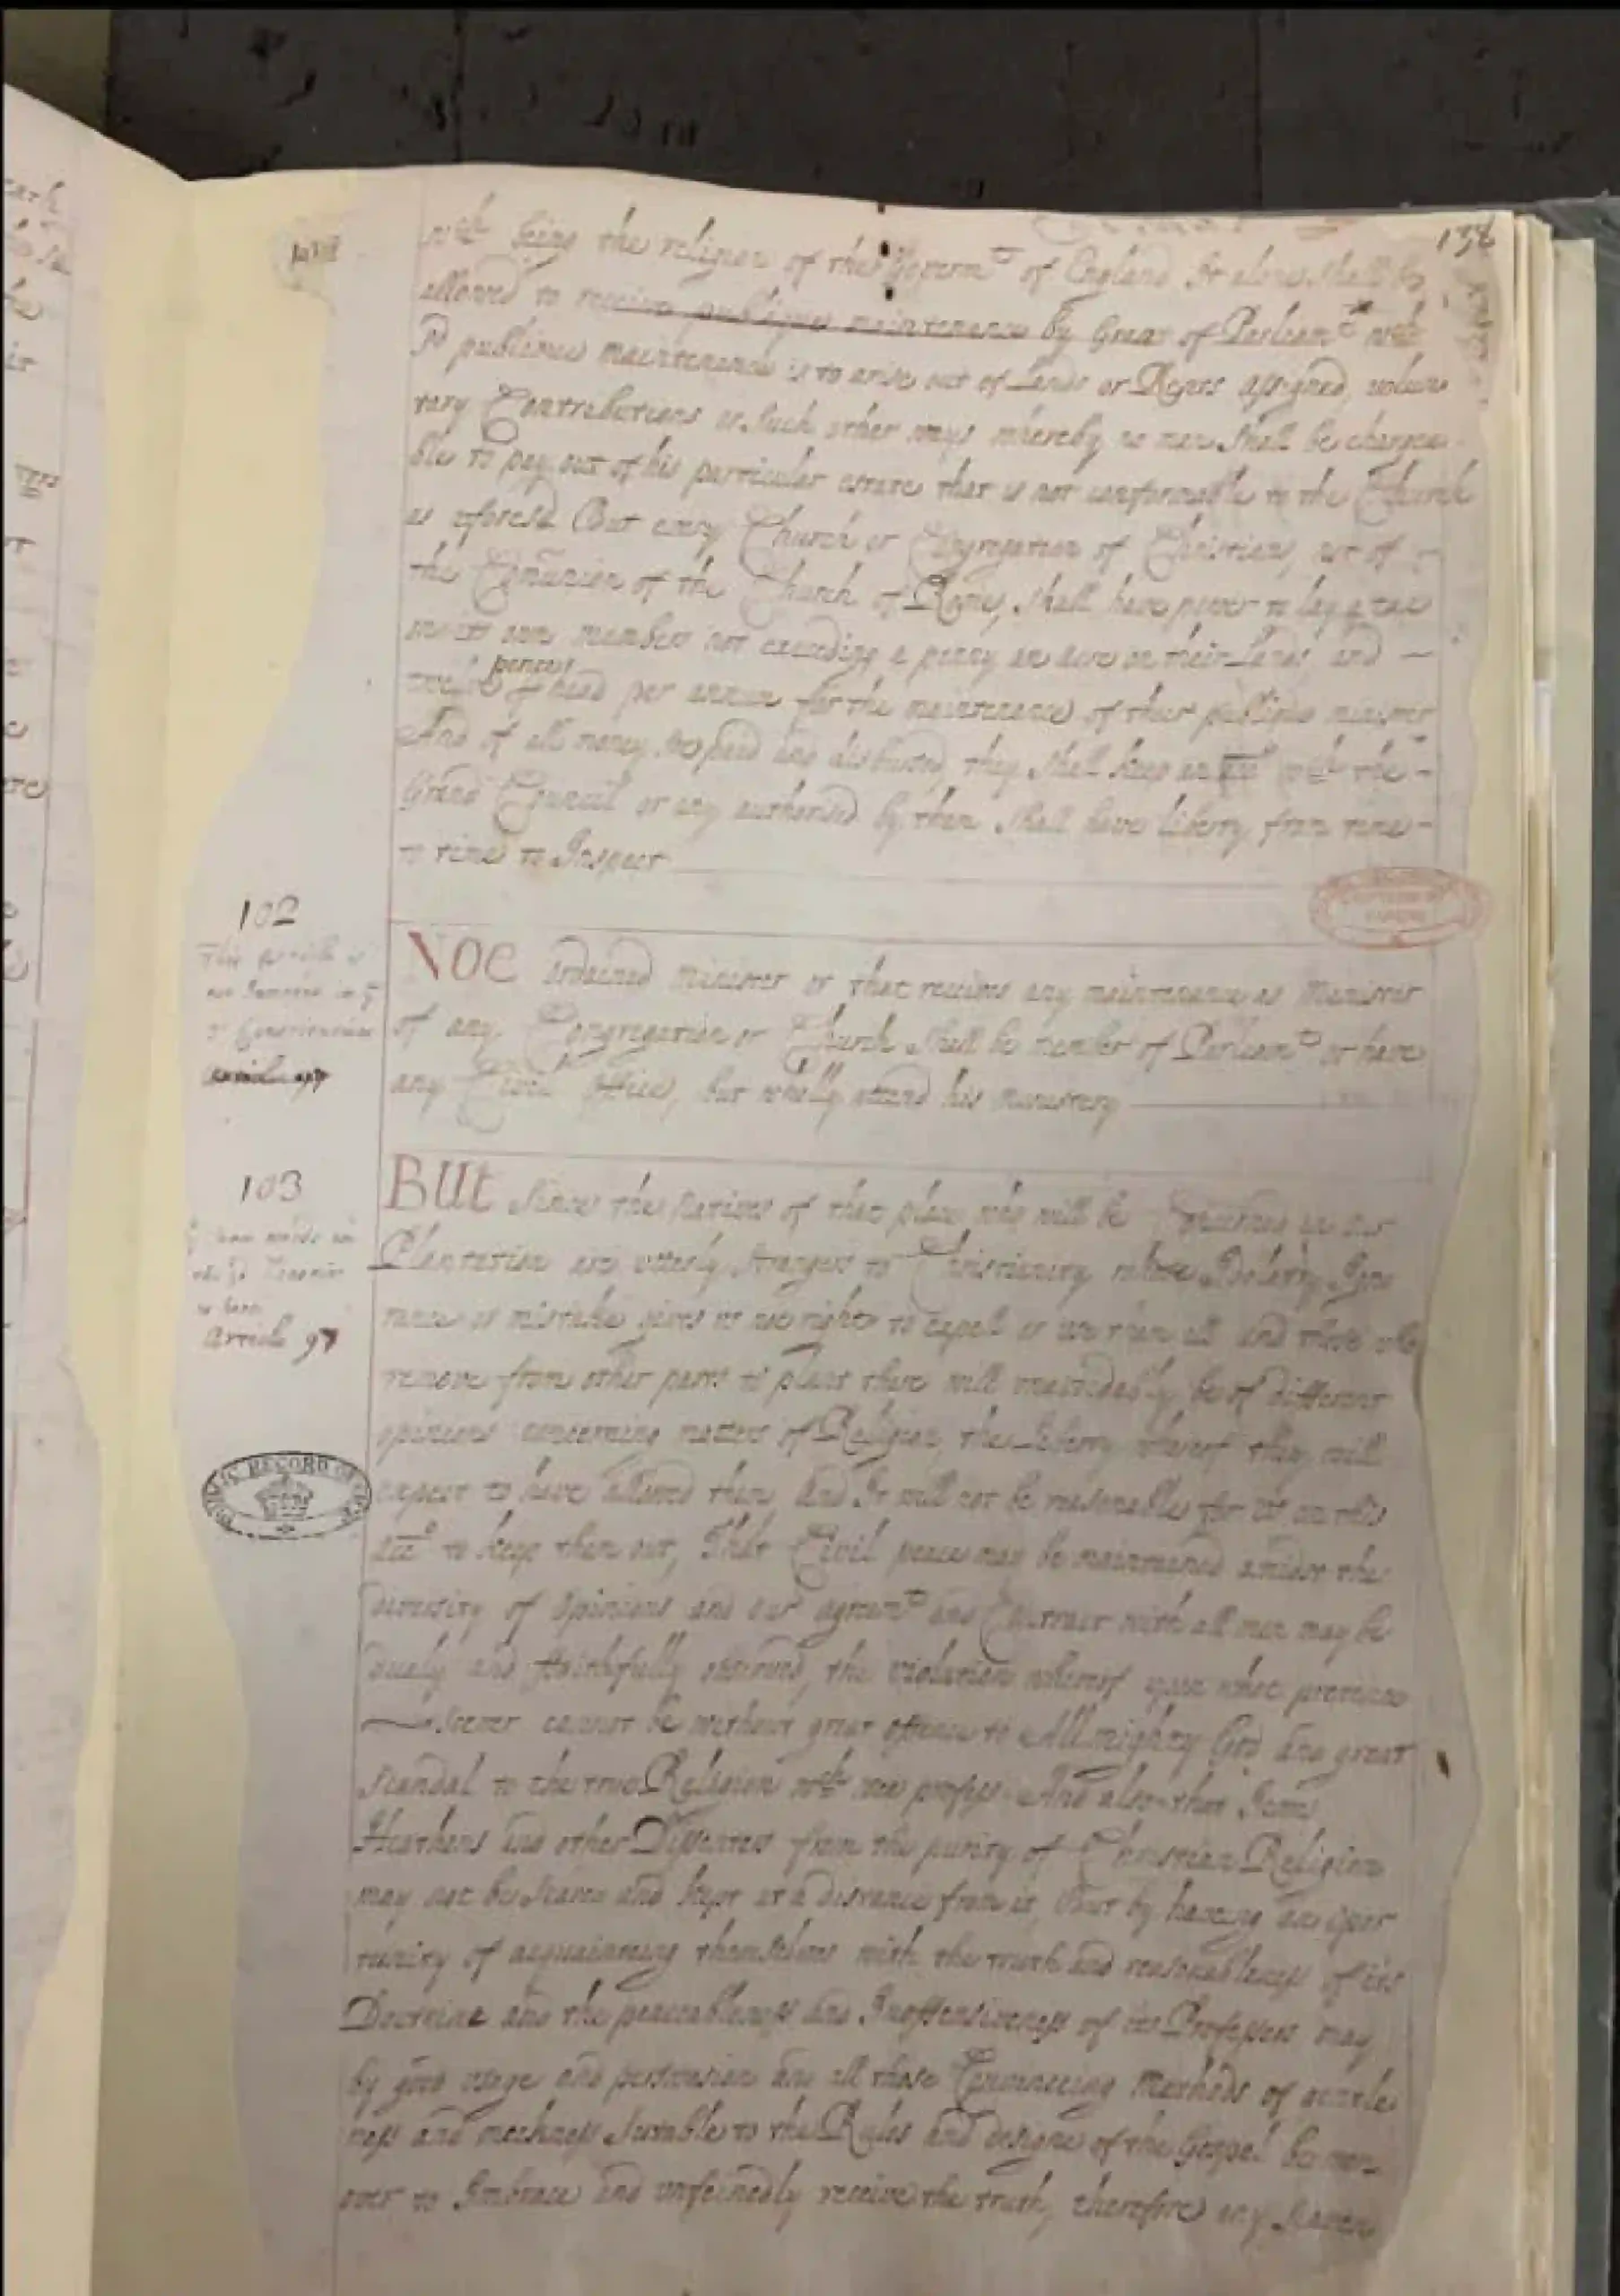 138
wch being the religion of the Governmt of England It alone shall be
allowed to receive publique maintenance by Grant of Parleamt wch
publique maintenance is to arise out of Lands or Rents assigned, volun
tary Contributions or such other ways whereby no man shall be chargea-
ble to pay out of his particular estate that is not conformable to the Church
as aforesd But every Church or Congregation of Christians, not of
the Comunion of the Church of Rome, shall have power to lay a tax
on its own members not exceeding a penny an acre on their Lands, and —
pence
twelve head per annum for the maintenance of their publique minister
And of all money so paid and disbursed, they shall keep an acct wch the -
Grand Council or any authorised by them shall have liberty from time -
to time to Inspect
102
This article is
not
article 97
NOE ordained minister or that receives any maintenance as Minister
of any Congregation or Church shall be member of Parleamt or have
any Civil office, but wholly attend his ministery
103
Article 97
BUt since the Natives of that place who will be Concerned in our
Plantation are utterly strangers to Christianity whose Idolatry Igno
rance or mistake gives us noe right to expell or use them ill and those who
remove from other parts to plant there will unavoidably be of different
opinions concerning matters of Religion, the Liberty whereof they will
expect to have allowed them, And It will not be reasonable for us on this
acct to keep them out, That Civil peace may be maintained amidst the
diversity of opinions and our agreemt and Contract with all men may be
duely and faithfully observed, the violation whereof upon what pretence
soever cannot be without great offence to Allmighty God and great
scandal to the true Religion wch wee profess And also that Jews
Heathens and other Dissenters from the purity of Christian Religion
may not be scared and kept at a distance from it, But by having an opor
tunity of acquainting themselves with the truth and reasonableness of its
Doctrine and the peaceableness and Inoffensiveness of its Professors may
by good usage and perswasion and all those Convinceing Methods of gentle
ness and meekness sutable to the Rules and designe of the Gospel be won
over to Imbrace and unfeinedly receive the truth, therefore any seaven
PUBLIC RECORD OFFICE